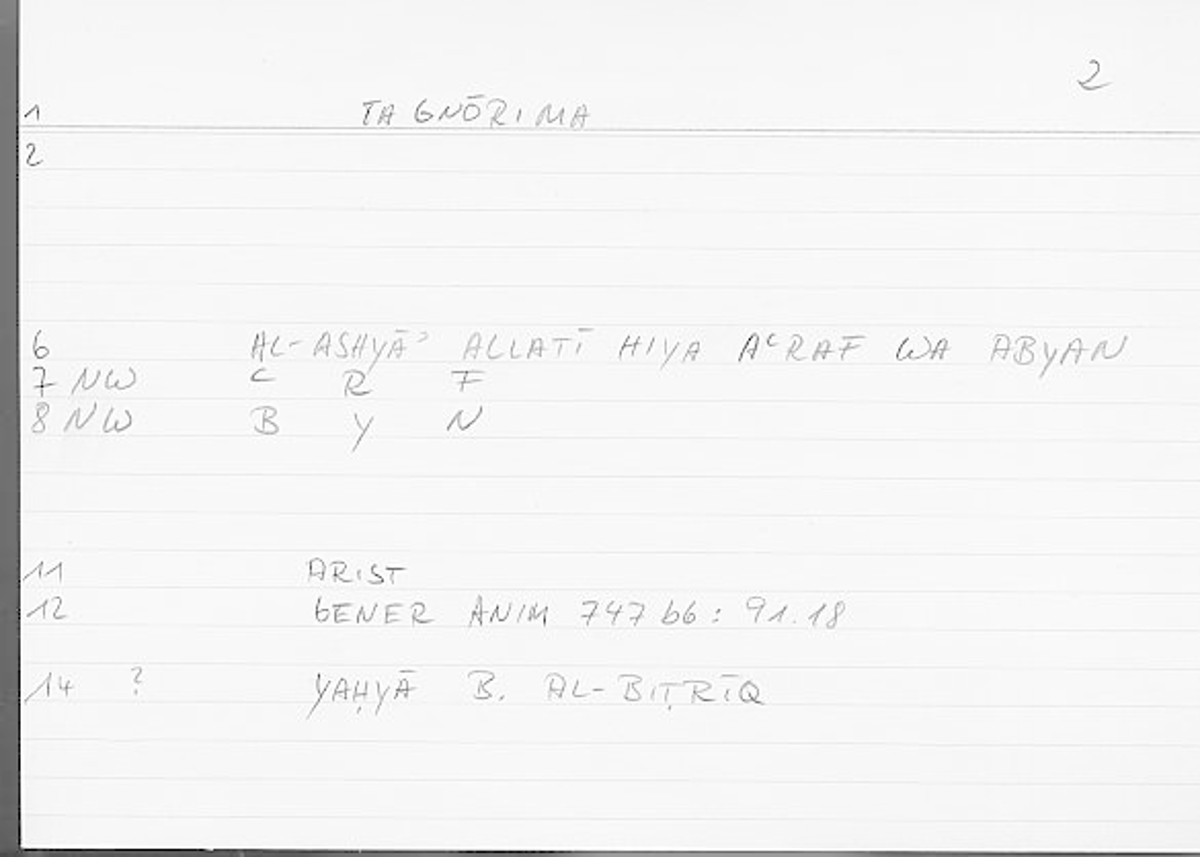 2
1 TA GNŌRIMA
2
6 AL-ASHYĀʾ ALLATĪ HIYA AʿRAF WA ABYAN
7 NW ʿ R F
8 NW B Y N
11 ARIST
12 GENER ANIM 747 b6 : 91.18
14 ? YAḤYĀ B. AL-BIṬRĪQ